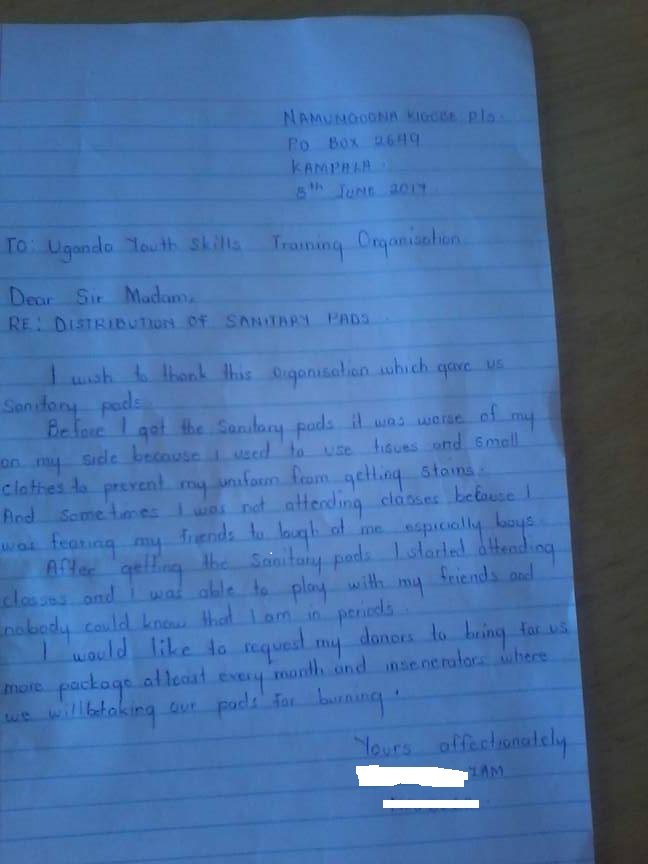 NAMUNGOONA KIGOBE P/s.
PO BOX 2649
KAMPALA.
8th JUNE 2017.
TO: Uganda Youth Skills Training Organisation
Dear Sir Madam,
RE: DISTRIBUTION OF SANITARY PADS
I wish to thank this Organisation which gave us
Sanitary pads.
Before I got the Sanitary pads it was worse of my
on my side because I used to use tisues and small
clothes to prevent my uniform from getting stains.
And Sometimes I was not attending classes because I
was fearing my friends to laugh at me espicially boys.
After getting the Sanitary pads I started attending
classes and I was able to play with my friends and
nobody could know that I am in periods.
I would like to request my donors to bring for us
more package atleast every month and insenerators where
we will be taking our pads for burning.
Yours affectionately
IAM